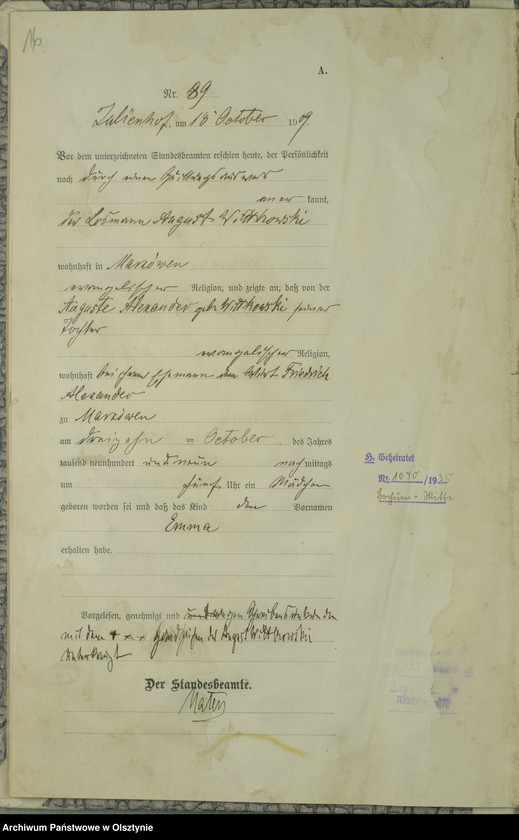 A.
Nr. 89
Julienhof am 18 October 1909.
Vor dem unterzeichneten Standesbeamten erschien heute, der Persönlichkeit
nach durch einen
aner kannt,
der Losmann August Wittkowski
wohnhaft in Markowen
evangelischer Religion, und zeigte an, daß von der
Auguste Alexander geb. Wittkowski seiner
Tochter
evangelischer Religion,
wohnhaft bei ihrem Ehemann dem Wirt Friedrich
Alexander
zu Markowen
am dreizehn ten October des Jahres
tausend neunhundert und neun nach mittags
um fünf Uhr ein Mädchen
geboren worden sei und daß das Kind den Vornamen
Emma
erhalten habe.
H. Geheiratet
Nr. 1070 /1935
Bochum - Mitte
Vorgelesen, genehmigt und wegen Schreibensunkunde
mit dem + x x Handzeichen des August Wittkowski
unterkreuzt
Der Standesbeamte.
Archiwum Państwowe w Olsztynie